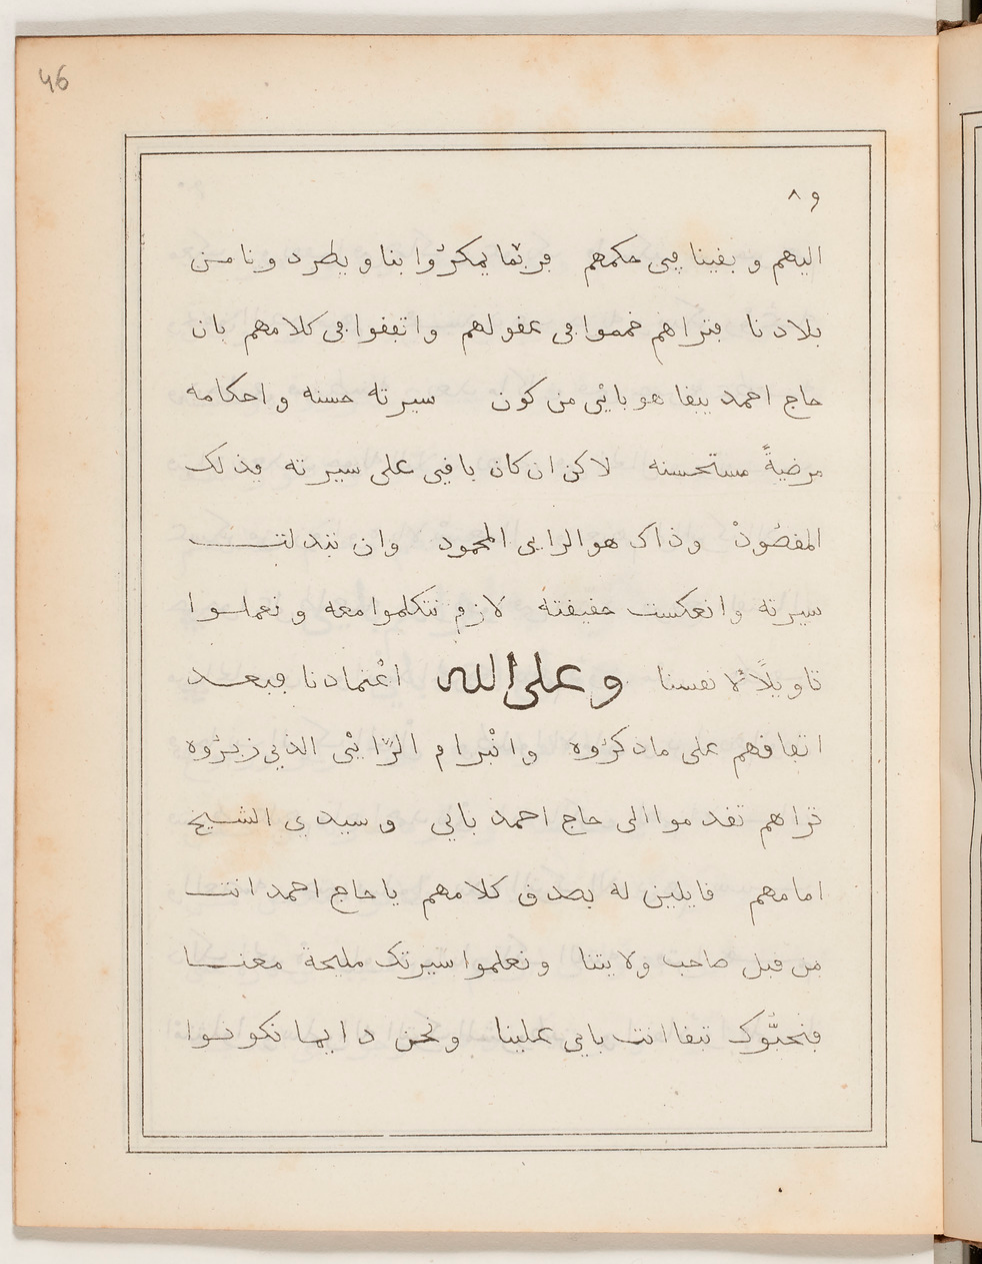 46
٨٩
اليهم وبقينا في حكمهم فربّما يمكرُوا بنا ويطردونا من
بلادنا فتراهم خمموا في عقولهم واتفقوا في كلامهم بان
حاج احمد يبقا هو بايْ من كون سيرته حسنه واحكامه
مرضيةً مستحسنه لاكن ان كان باقي على سيرته فذلك
المقصُودْ وذاك هو الراي المحمود وان تبدلت
سيرته وانعكست حقيقتهُ لازم نتكلموا معه ونعملوا
تاويلًا لانفسنا وعلى الله اعْتمادنا فبعد
اتفاقهم على ماذكرُوه وانْبرام الرَّاىْ الذي زبرُوه
تراهم تقدموا الى حاج احمد باي وسيدي الشيخ
امامهم قايلين له بصدق كلامهم يا حاج احمد انت
من قبل صاحب ولايتنا ونعلموا سيرتك مليحة معنا
فنحبُّوك تبقا انت باي علينا ونحن دايما نكونوا